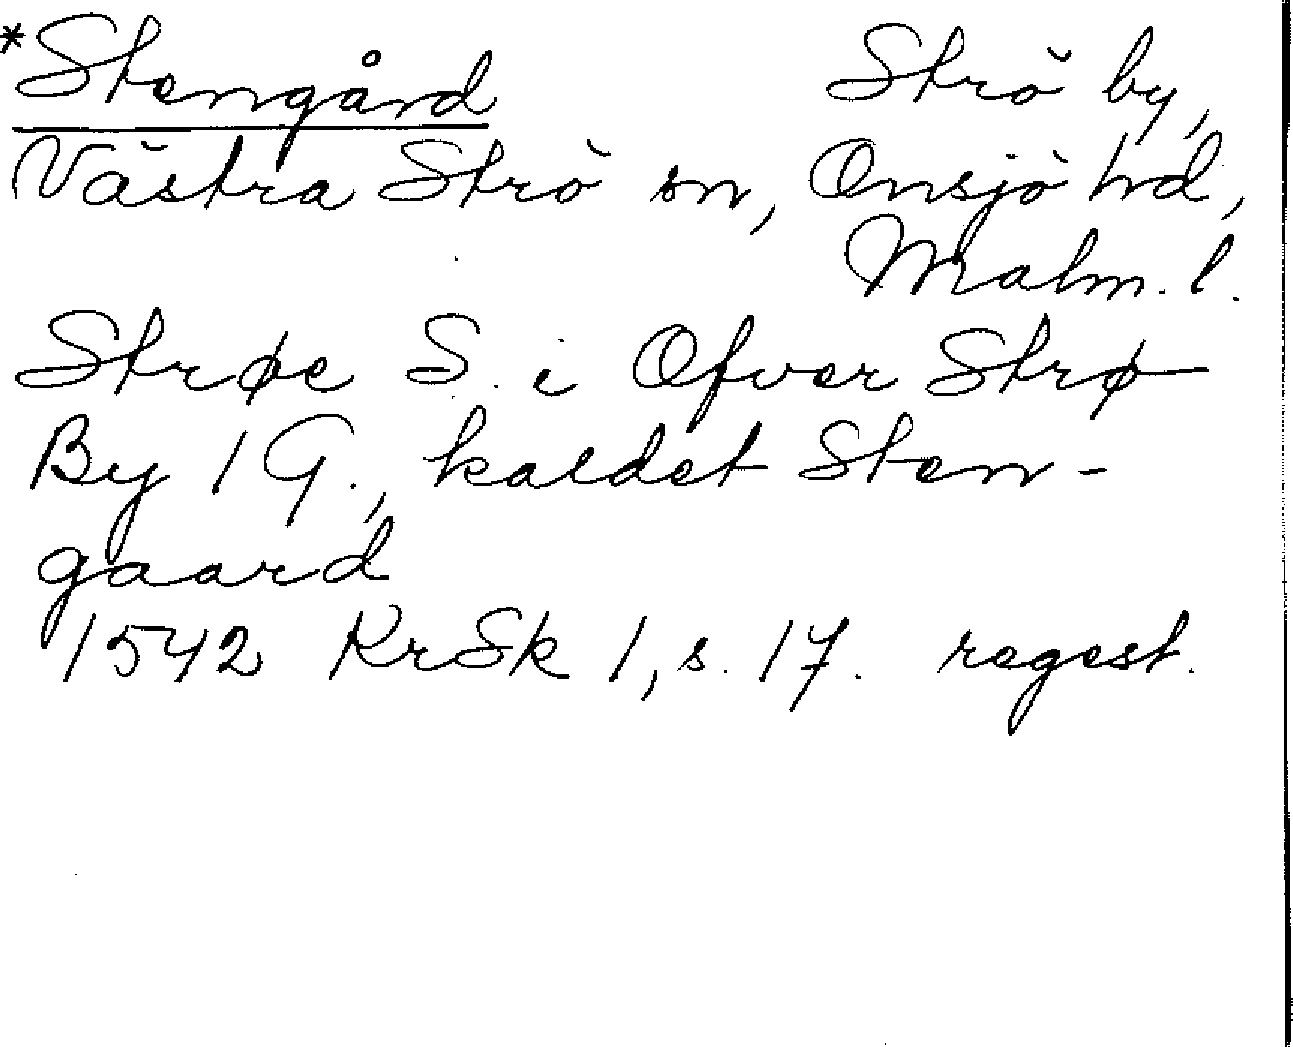 *Stengård Strö by,
Västra Strö sn, Onsjö hd,
Malm. l.
Strøe S. i Ofver Strø
By 1 G., kaldet Sten-
gaard
1542 KrSk 1, s. 17. regest.